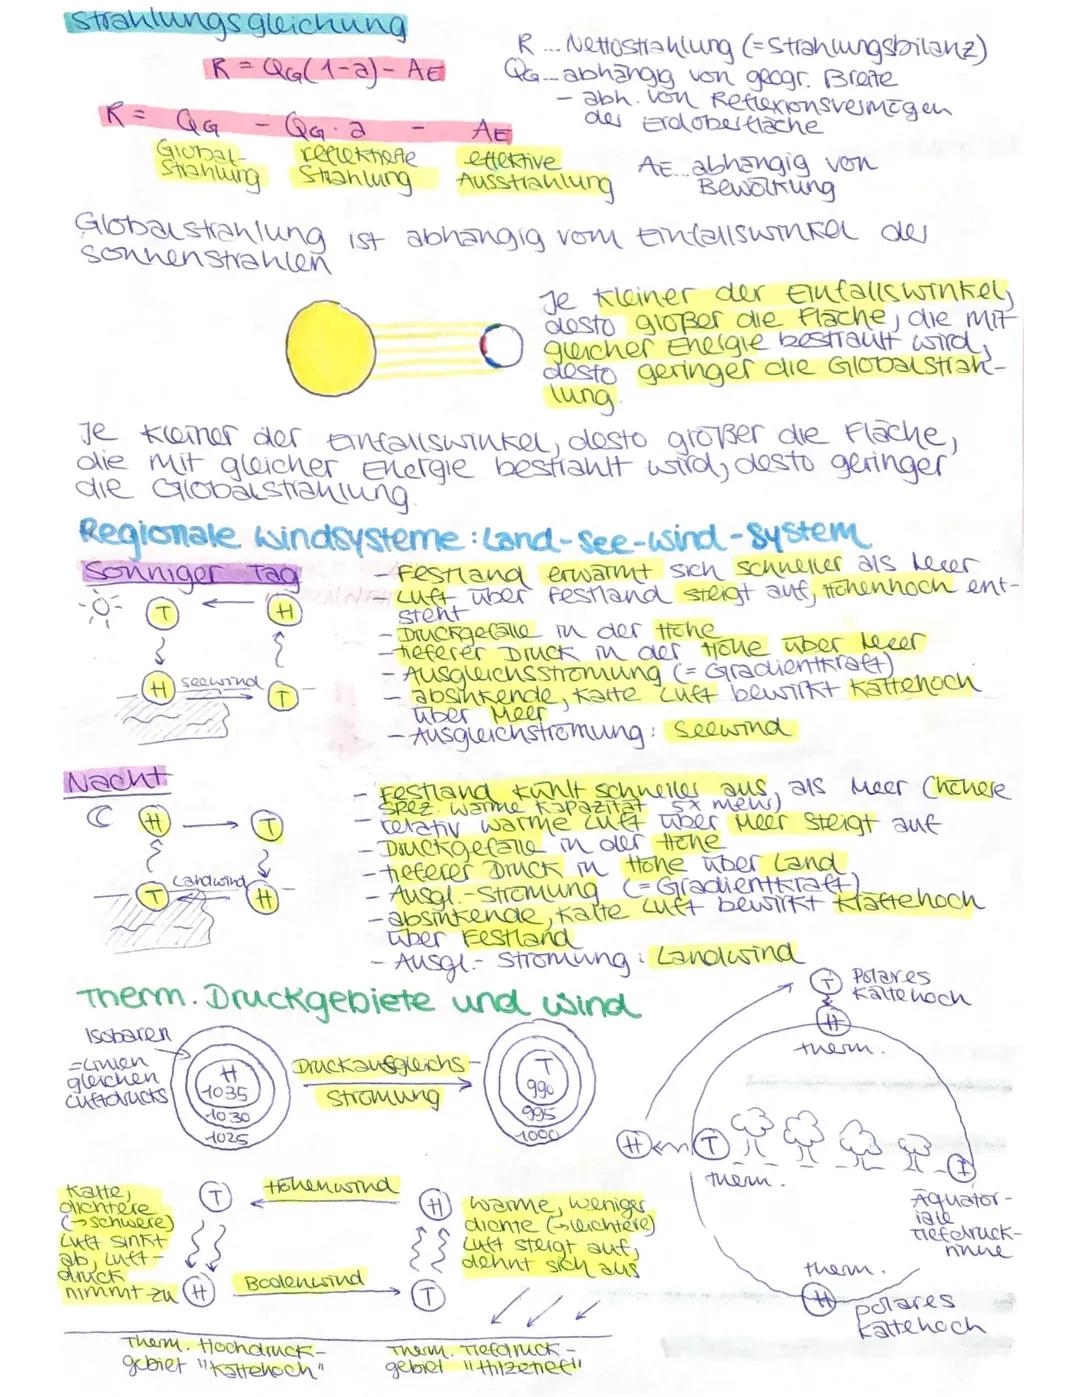 Strahlungsgleichung
R = QG(1-a) - AE
R = QG - QG · a - AE
Global-
strahlung
reflektierte
Strahlung
effektive
Ausstrahlung
R ... Nettostrahlung (= Strahlungsbilanz)
QG ... abhängig von geogr. Breite
- abh. von Reflexionsvermögen
der Erdoberfläche
AE ... abhängig von
Bewölkung
Globalstrahlung ist abhängig vom Einfallswinkel der
Sonnenstrahlen
Je kleiner der Einfallswinkel,
desto größer die Fläche, die mit
gleicher Energie bestrahlt wird,
desto geringer die Globalstrah-
lung.
Je kleiner der Einfallswinkel, desto größer die Fläche,
die mit gleicher Energie bestrahlt wird, desto geringer
die Globalstrahlung.
Regionale Windsysteme: Land-See-Wind-System
Sonniger Tag
T H
H Seewind T
- Festland erwärmt sich schneller als Meer
- Luft über Festland steigt auf, Höhenhoch ent-
steht
- Druckgefälle in der Höhe
- tieferer Druck in der Höhe über Meer
- Ausgleichsströmung (= Gradientkraft)
- absinkende, kalte Luft bewirkt Kältehoch
über Meer
- Ausgleichströmung: Seewind
Nacht
H T
T Landwind H
- Festland kühlt schneller aus, als Meer (höhere
spez. Wärme Kapazität 5x mehr)
- relativ warme Luft über Meer steigt auf
- Druckgefälle in der Höhe
- tieferer Druck in Höhe über Land
- Ausgl.-Strömung (= Gradientkraft)
- absinkende, kalte Luft bewirkt Klättehoch
über Festland
- Ausgl.- Strömung: Landwind
Therm. Druckgebiete und Wind
Isobaren
= Linien
gleichen
Luftdrucks
H
1035
1030
1025
Druckausgleichs-
strömung
T
990
995
1000
Kalte,
dichtere
(→ schwere)
Luft sinkt
ab, Luft-
druck
nimmt zu
T Höhenwind H
H Bodenwind T
Warme, weniger
dichte (→ leichtere)
Luft steigt auf,
dehnt sich aus
Therm. Hochdruck-
gebiet "Kältehoch"
Therm. Tiefdruck-
gebiet "Hitzetief"
T Polares
Kältehoch
H
therm.
H T
therm.
T
Äquator-
iale
Tiefdruck-
rinne
therm.
H polares
Kältehoch